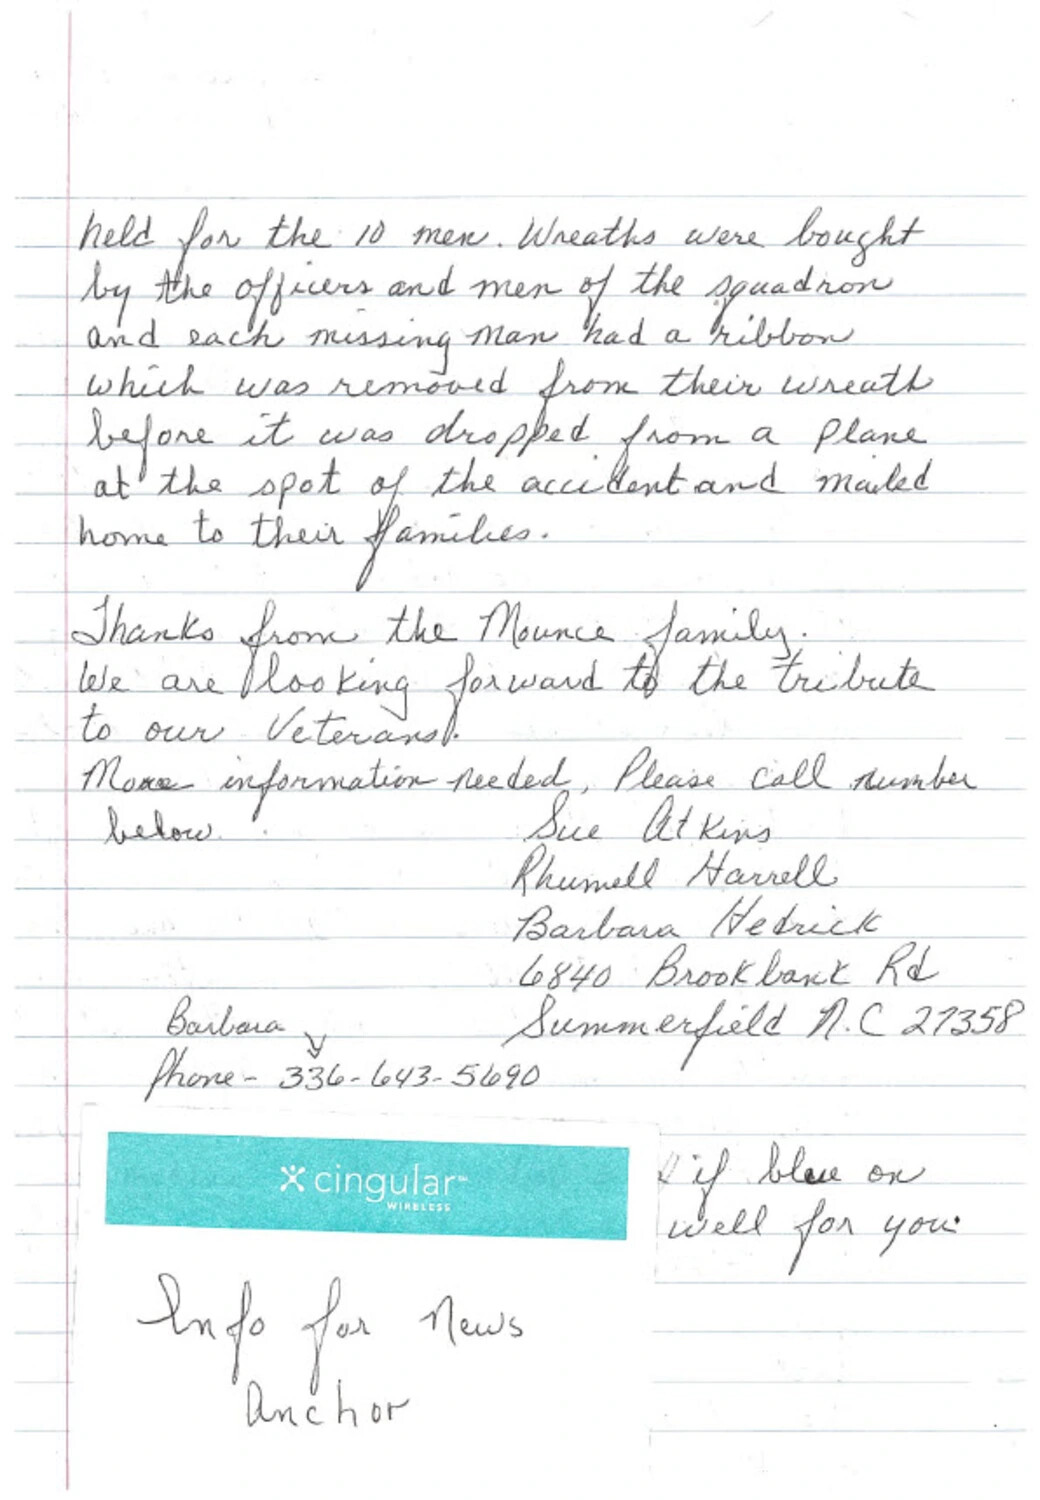 held for the 10 men. Wreaths were bought
by the officers and men of the squadron
and each missing man had a ribbon
which was removed from their wreath
before it was dropped from a plane
at the spot of the accident and mailed
home to their families.
Thanks from the Mounce family.
We are looking forward to the tribute
to our Veterans.
More information needed, Please call number
below.
Sue Atkins
Rhumell Harrell
Barbara Hedrick
6840 Brookbank Rd
Summerfield N.C 27358
Barbara
Phone - 336-643-5690
if blue on
well for you.
cingular™
WIRELESS
Info for News
Anchor